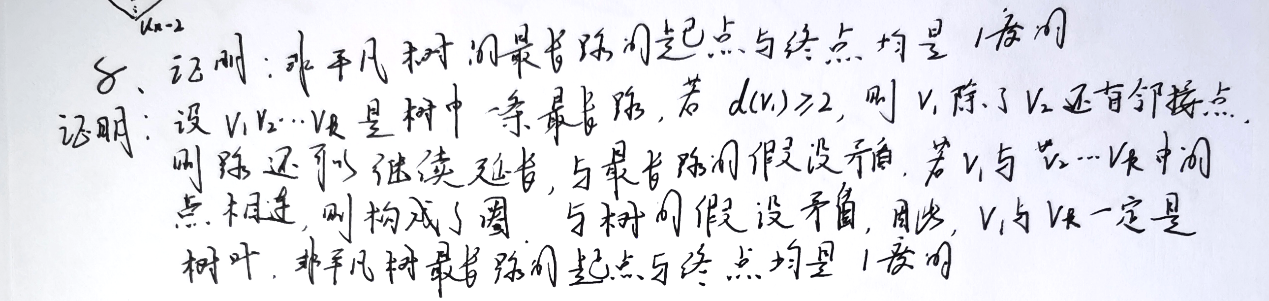 Vn-2
8、证明:非平凡树的最长路的起点与终点均是1度的
证明:设V₁V₂…Vk是树中一条最长路,若d(V₁)≥2,则V₁除了V₂还有邻接点,
则路还可以继续延长,与最长路的假设矛盾.若V₁与V₂…Vk中的
点相连,则构成了圈 与树的假设矛盾,因此,V₁与Vk一定是
树叶.非平凡树最长路的起点与终点均是1度的